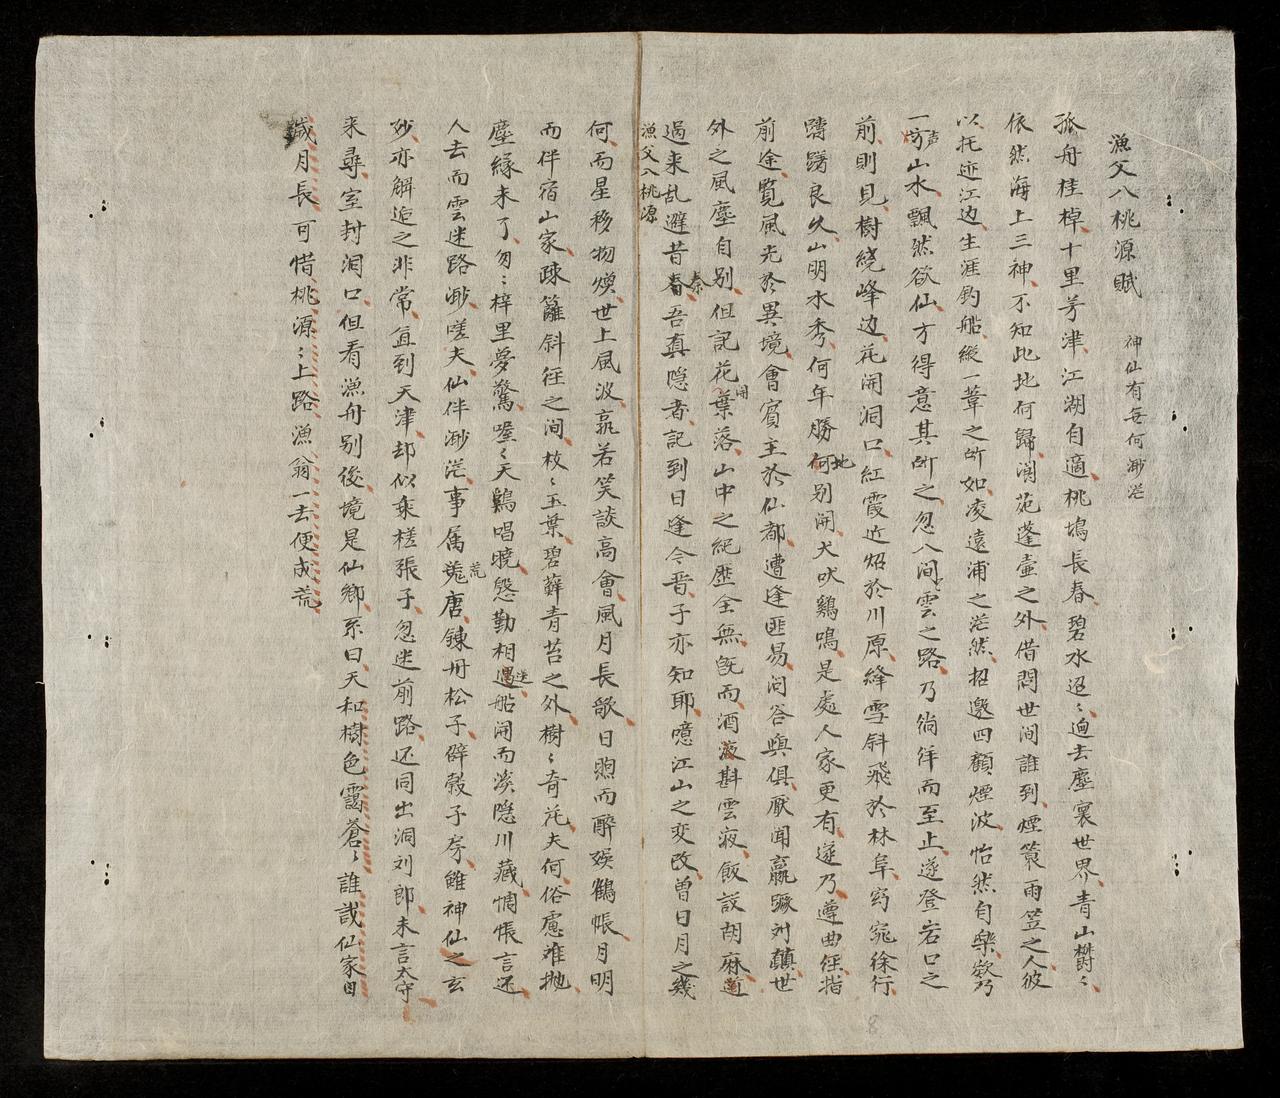 漁父入桃源賦 神仙有無何渺茫
孤舟桂棹十里芳津江湖自適桃塢長春碧水迢〻迥去塵裏世界青山欝〻
依然海上三神不知此地何歸閬苑蓬壺之外借問世间誰到煙簑雨笠之人彼
以托迹江边生涯釣船縱一葦之所如凌遠浦之茫然招邀四顧煙波怡然自樂欸乃
一声山水飄然欲仙方得意其所之忽入间雲之路乃徜徉而至止遂登岩口之
前則見樹繞峰边花開洞口紅霞近炤於川原絳雪斜飛於林阜窈窕徐行
躊躇良久山明水秀何年勝地别開犬吠鷄鳴是處人家更有遂乃遵曲徑指
前途覧風光於異境會賓主於仙都遭逢匪易问答與俱厭闻嬴蹶刘顛世
外之風塵自别但記花開葉落山中之紀歷全無旣而酒液斟雲夜飯設胡麻道
過来乱避昔秦吾真隐者記到日逢今晋子亦知耶噫江山之変改曽日月之幾
漁父入桃源
何而星移物煥世上風波孰若笑談高會風月長歌日煦而醉娱鶴帳月明
而伴宿山家踈籬斜徑之间枚〻玉葉碧蘚青苔之外樹〻奇花夫何俗慮难抛
塵緣未了匆〻梓里夢驚喔〻天鷄唱曉慇勤相送船開而淡隱川藏惆悵言还
人去而雲迷路渺嗟夫仙伴渺茫事属荒唐錬丹松子辟穀子房雖神仙之玄
妙亦解逅之非常直到天津却似乘槎張子忽迷前路还同出洞刘郎未言太守
来尋室封洞口但看漁舟别後境是仙鄉系曰天和樹色靄蒼〻誰哉仙家日
歲月長可惜桃源〻上路漁翁一去便成荒
8